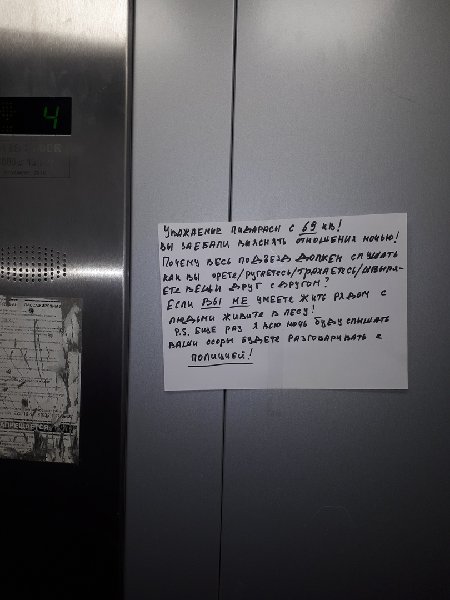 4
УВАЖАЕМЫЕ ПИДАРАСЫ С 69 КВ!
ВЫ ЗАЕБАЛИ ВЫЯСНЯТЬ ОТНОШЕНИЯ НОЧЬЮ!
ПОЧЕМУ ВЕСЬ ПОДЪЕЗД ДОЛЖЕН СЛУШАТЬ
КАК ВЫ ОРЕТЕ/РУГАЕТЕСЬ/ТРАХАЕТЕСЬ/ШВЫРЯ-
ЕТЕ ВЕЩИ ДРУГ С ДРУГОМ?
ЕСЛИ ВЫ НЕ УМЕЕТЕ ЖИТЬ РЯДОМ С
ЛЮДЬМИ ЖИВИТЕ В ЛЕСУ!
P.S. ЕЩЕ РАЗ Я ВСЮ НОЧЬ БУДУ СЛЫШАТЬ
ВАШИ ССОРЫ БУДЕТЕ РАЗГОВАРИВАТЬ С
ПОЛИЦИЕЙ!